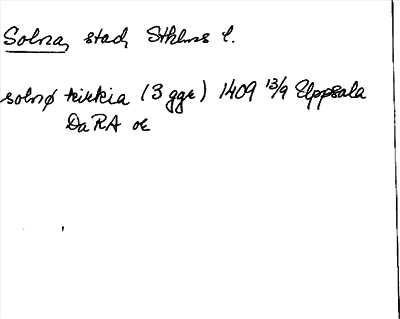 Solna, stad, Sthlms l.
solnø kirkia (3 ggr) 1409 13/9 Uppsala
DaRA or